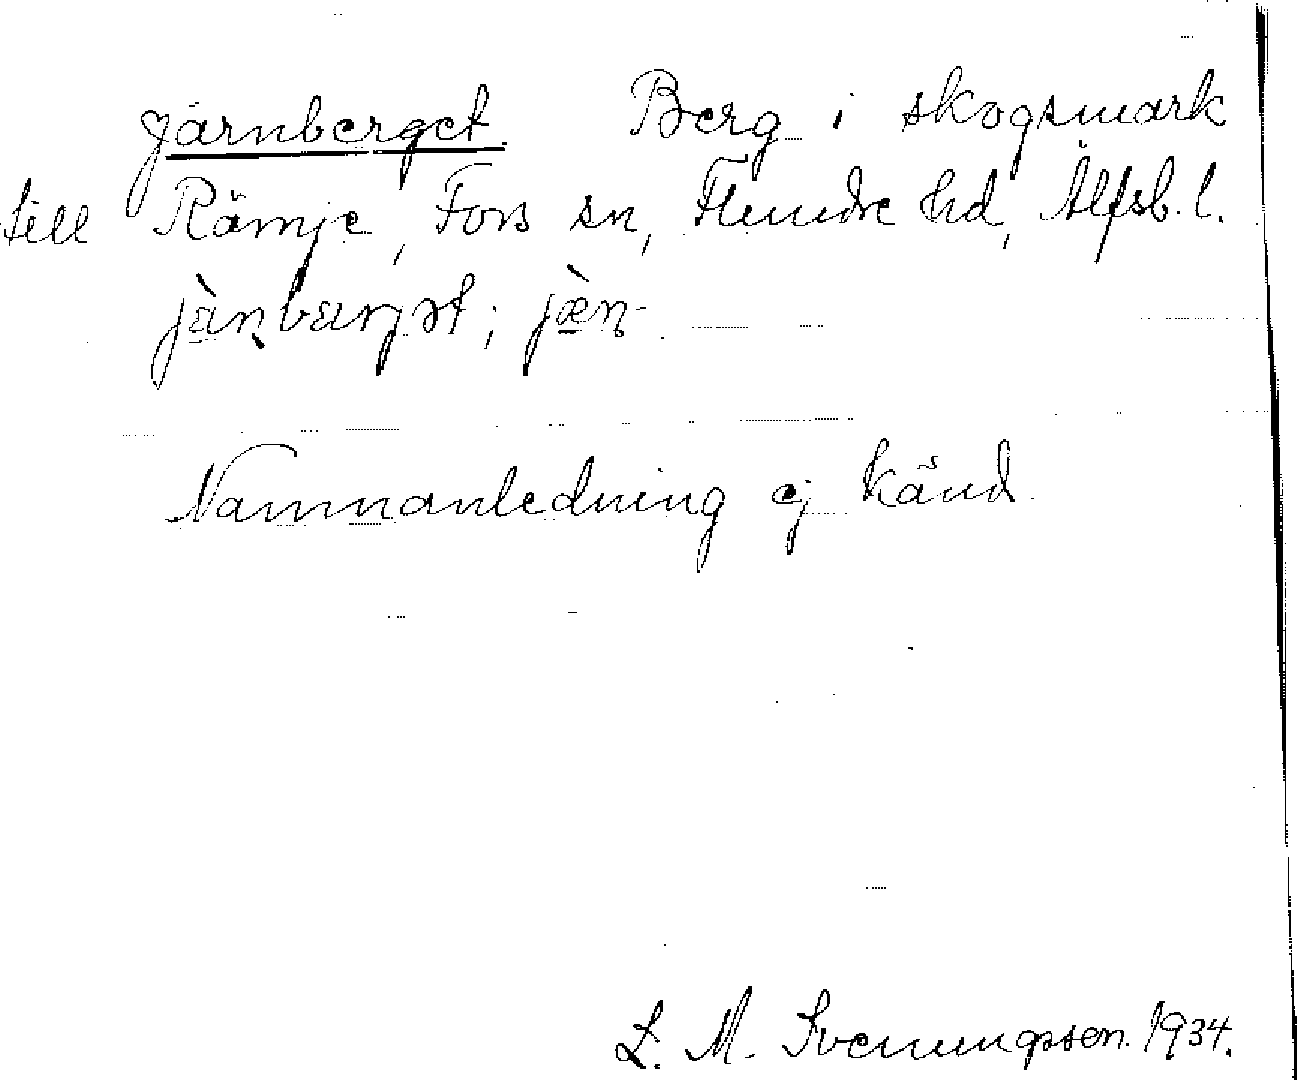 Järnberget. Berg i skogsmark
till Rämje, Fors sn, Flundre hd, Älfsb. l.
jæ̀ṇbærjət; jæ̀ṇ-.
Namnanledning ej känd.
L. M. Svenungsson. 1934.